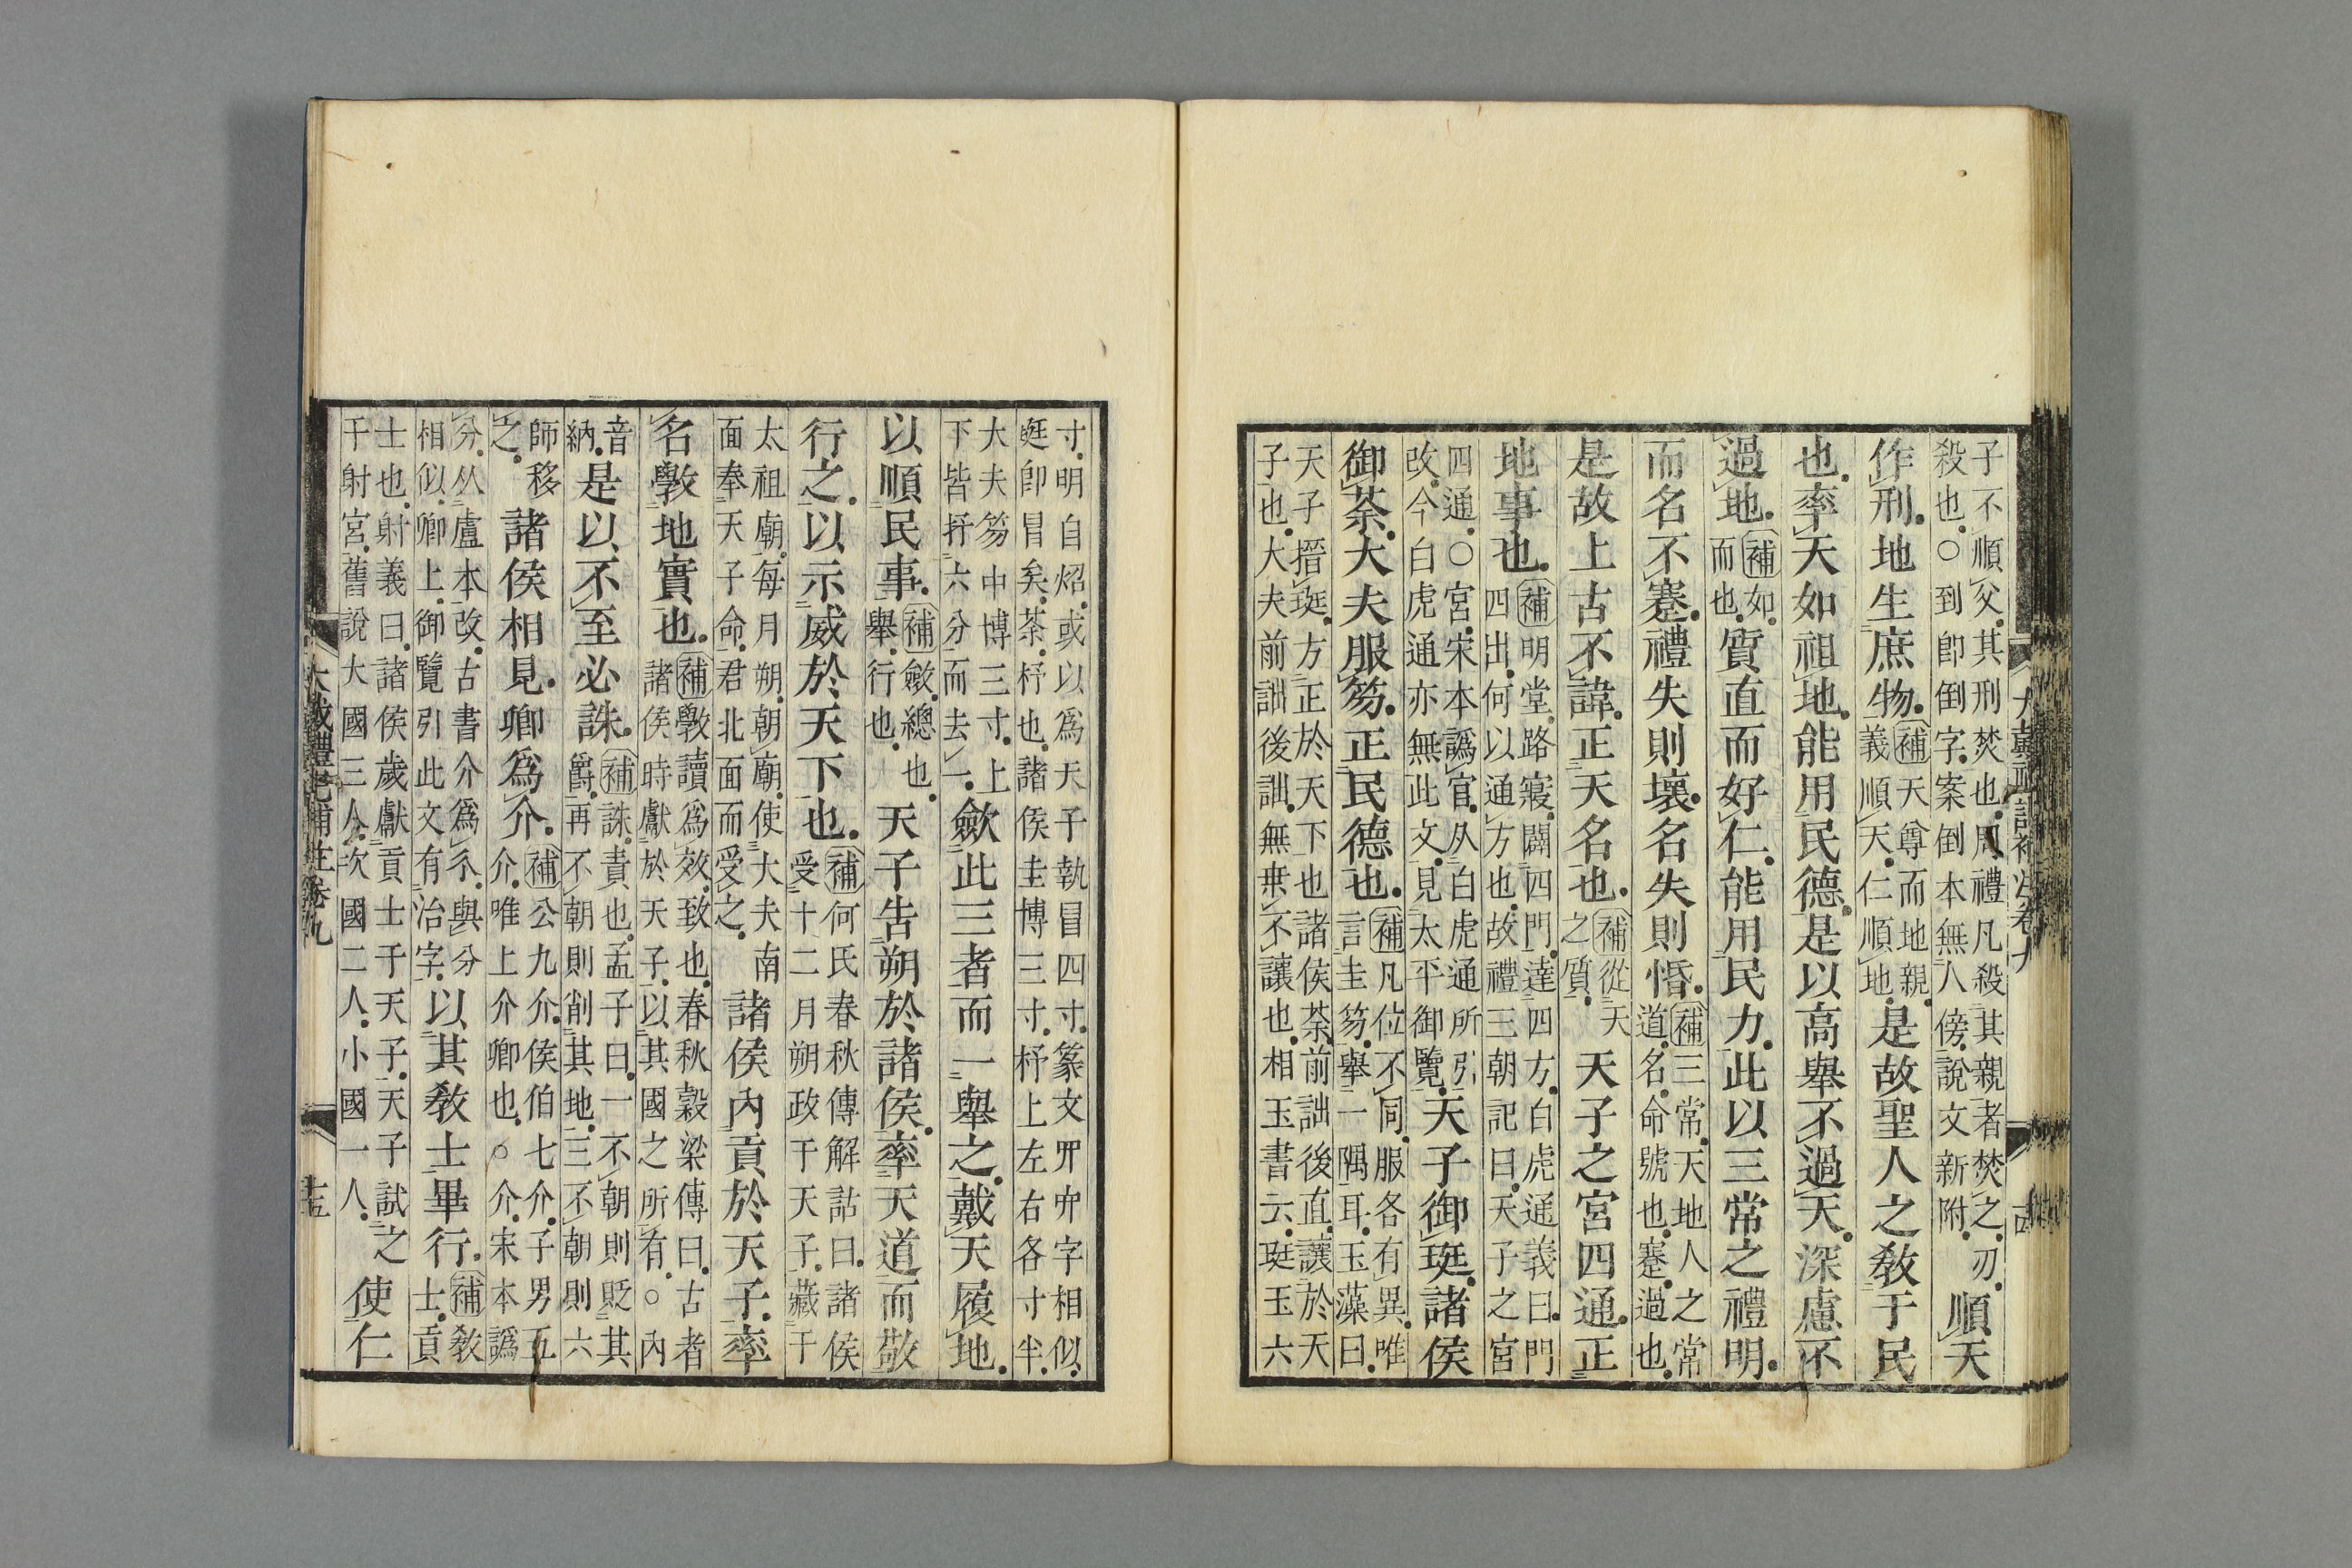 子不順父其刑焚也周禮凡殺其親者焚之刃
殺也○到卽倒字案倒本無人傍說文新附
順天
作刑地生庶物
補天尊而地親
義順天仁順地
是故聖人之敎于民
也率天如祖地能用民德是以高舉不過天深慮不
過地
補如
而也
質直而好仁能用民力此以三常之禮明
而名不蹇禮失則壞名失則惛
補三常天地人之常
道名命號也蹇過也
是故上古不諱正天名也
補從天
之質
天子之宮四通正
地事也
補明堂路寢闢四門達四方白虎通義曰門
四出何以通方也故禮三朝記曰天子之宮
四通○宮宋本譌官从白虎通所引
改今白虎通亦無此文見太平御覽
天子御珽諸侯
御荼大夫服笏正民德也
補凡位不同服各有異唯
言圭笏舉一隅耳玉藻曰
天子搢珽方正於天下也諸侯荼前詘後直讓於天
子也大夫前詘後詘無所不讓也相玉書云珽玉六
寸明自炤或以爲天子執冒四寸篆文
字相似
珽卽冒矣荼杼也諸侯圭博三寸杼上左右各寸半
大夫笏中博三寸上
下皆杼六分而去一
歛此三者而一舉之戴天履地
以順民事
補歛總也
舉行也
天子告朔於諸侯率天道而敬
行之以示威於天下也
補何氏春秋傳解詁曰諸侯
受十二月朔政于天子藏于
太祖廟每月朔朝廟使大夫南
面奉天子命君北面而受之
諸侯內貢於天子率
名斆地實也
補斆讀爲效效致也春秋穀梁傳曰古者
諸侯時獻於天子以其國之所有○內
音
納
是以不至必誅
補誅責也孟子曰一不朝則貶其
爵再不朝則削其地三不朝則六
師移
之
諸侯相見卿爲介
補公九介侯伯七介子男五
介唯上介卿也○介宋本譌
分从盧本改古書介爲夰與分
相似卿上御覽引此文有治字
以其敎士畢行
補敎
士貢
士也射義曰諸侯歲獻貢士于天子天子試之
于射宮舊說大國三人次國二人小國一人
使仁
大戴禮記補注卷九